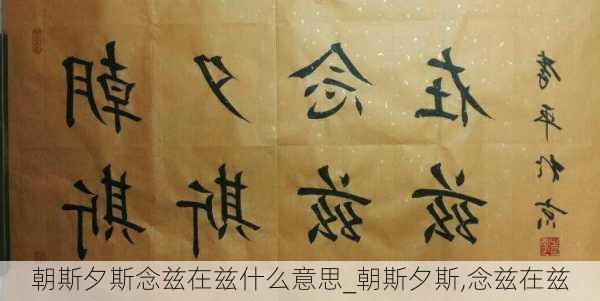 朝斯
夕斯
念兹
在兹
朝斯夕斯念兹在兹什么意思_朝斯夕斯,念兹在兹